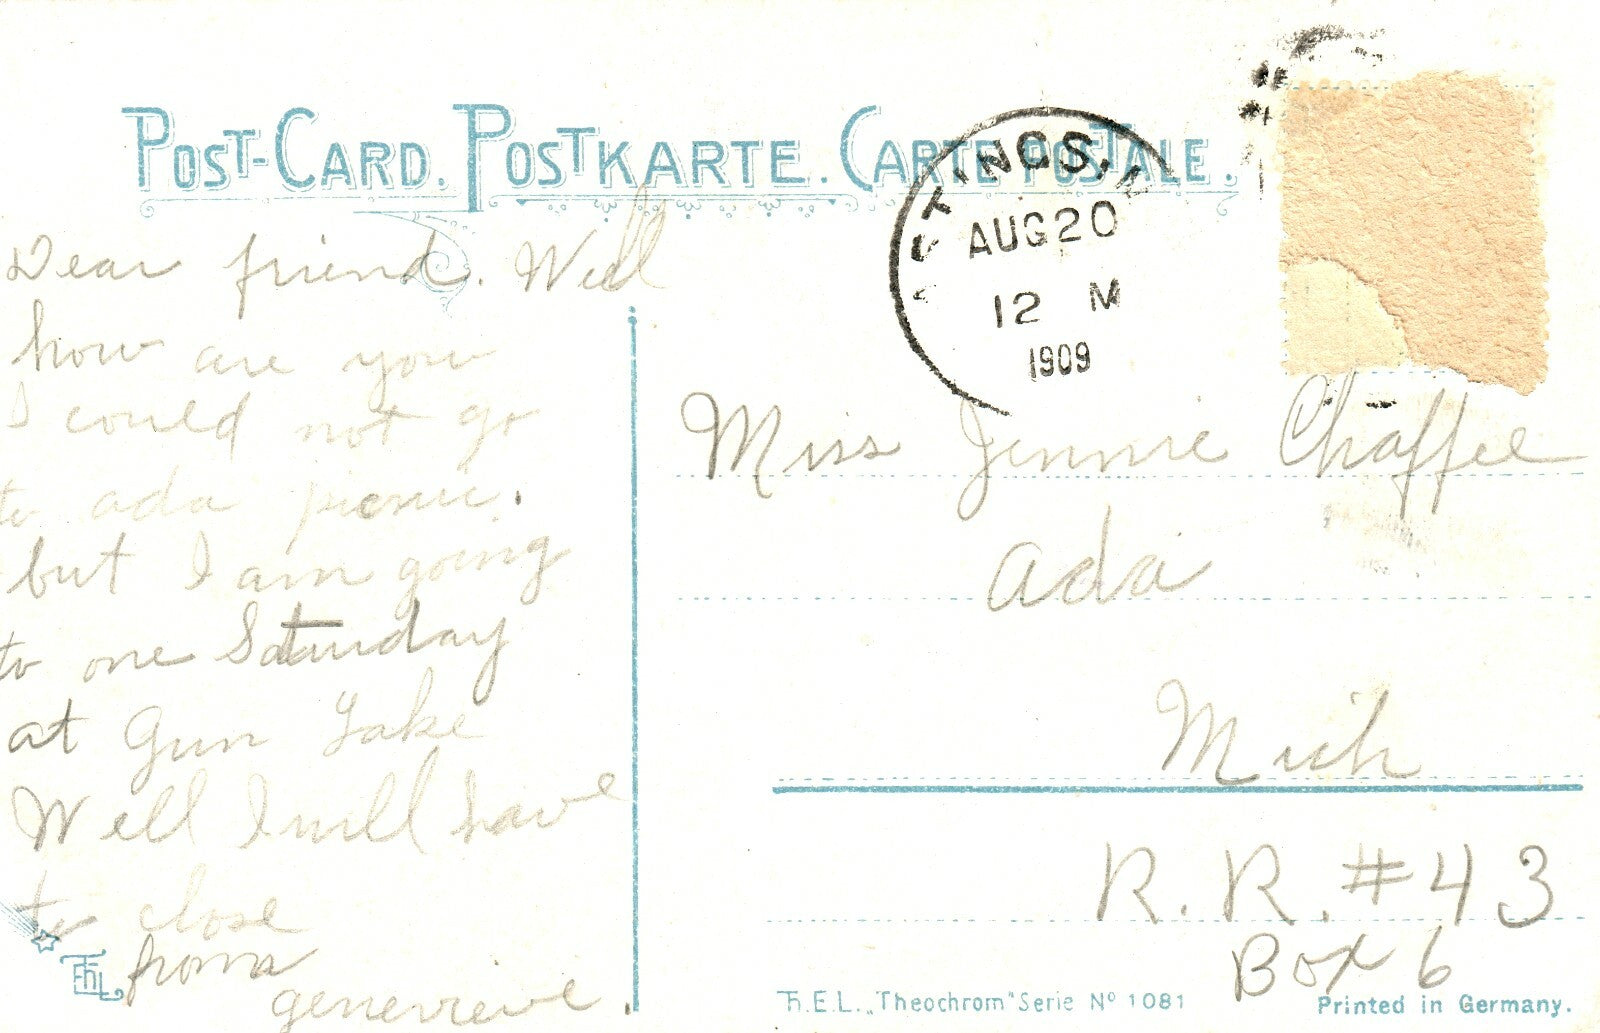 POST-CARD. POSTKARTE. CARTE POSTALE.
ASTINGS, M
AUG 20
12 M
1909
Dear friend. Well
how are you
I could not go
to ada picnic.
but I am going
to one Saturday
at Gun Lake
Well I will have
to close
from
genevieve.
Miss Jennie Chaffee
ada
Mich
R. R. #43
Box 6
Th. E. L. „Theochrom" Serie Nº 1081
Printed in Germany.